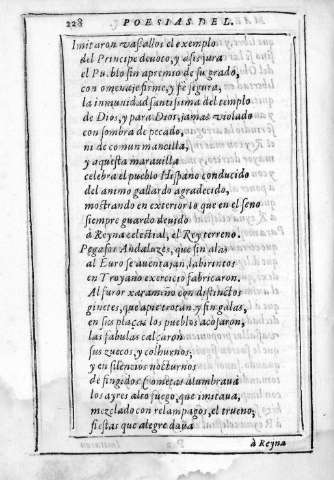 228 POESIAS DEL.
Imitaron vassallos el exemplo
del Principe deuoto, y assi jura
el Pueblo sin apremio de su grado,
con omenaje firme, y fè segura,
la inmunidad santissima del templo
de Dios, y para Dios, jamas violado
con sombra de pecado,
ni de comun mancilla,
y aquesta marauilla
celebra el pueblo Hispano conducido
del animo gallardo agradecido,
mostrando en exterior lo que en el seno
siempre guardo deuido
à Reyna celestial, el Rey terreno.
Pegasos Andaluzes, que sin alas
al Euro se auentajan, labirintos
en Troyano exercicio fabricaron.
Al furor xarameño con distinctos
ginetes, que apie trotan, y sin galas,
en sus plaças los pueblos acosaron,
las fabulas calçaron
sus zuecos, y cothurnos,
y en silencios nocturnos
de fingidos Cometas alumbraua
los ayres alto fuego, que imitaua,
mezclado con relampagos, el trueno,
fiestas que alegre daua
à Reyna